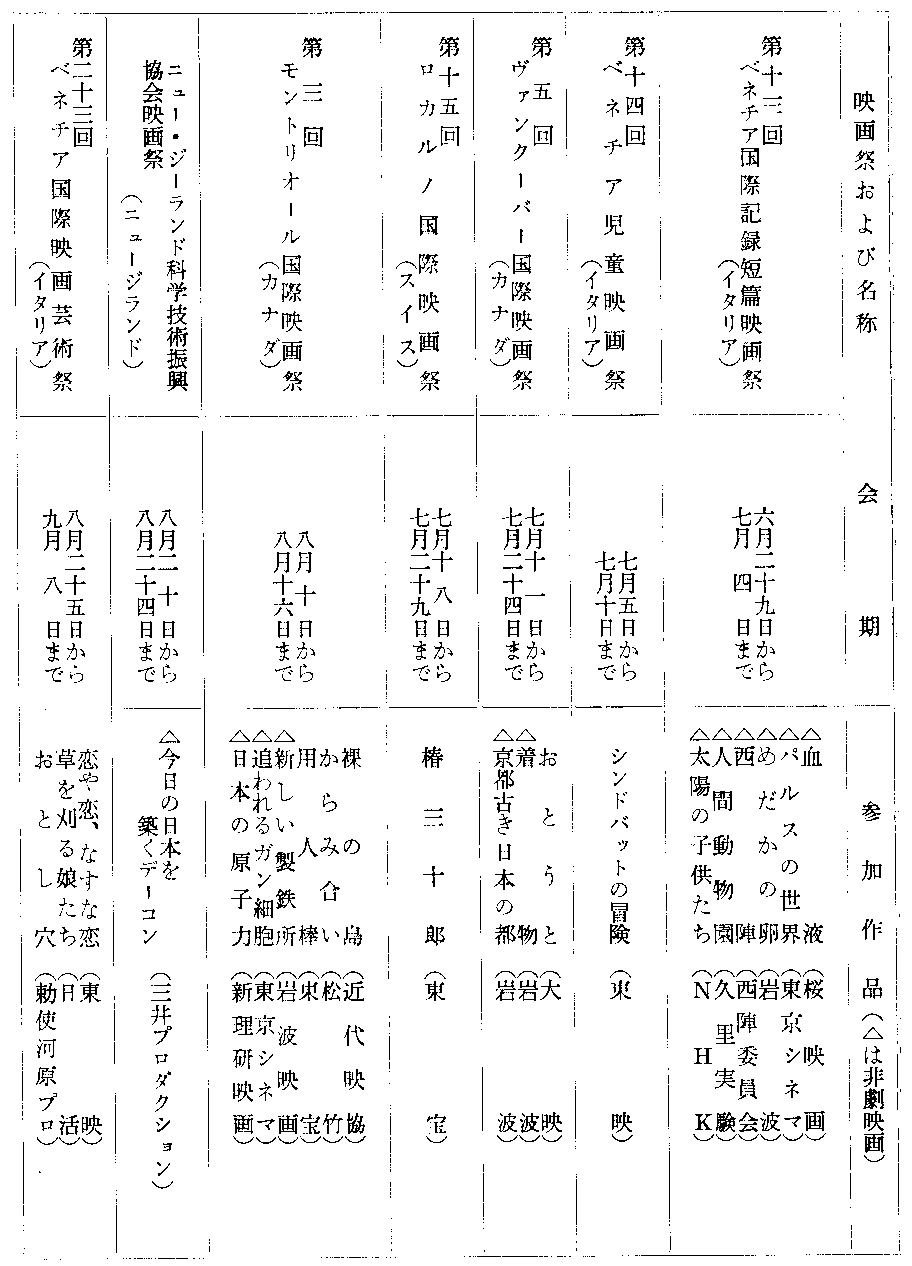 映画祭および名称
会期
参加作品（△は非劇映画）
第十三回
ベネチア国際記録短篇映画祭
（イタリア）
六月二十九日から
七月四日まで
△血液（桜映画）
△パルスの世界（東京シネマ）
△めだかの卵（岩波）
△西陣（西陣委員会）
△人間動物園（久里実験）
△太陽の子供たち（NHK）
第十四回
ベネチア児童映画祭
（イタリア）
七月五日から
七月十日まで
シンドバットの冒険（東映）
第五回
ヴァンクーバー国際映画祭
（カナダ）
七月十一日から
七月二十四日まで
おとうと（大映）
△着物（岩波）
△京都古き日本の都（岩波）
第十五回
ロカルノ国際映画祭
（スイス）
七月十八日から
七月二十九日まで
椿三十郎（東宝）
第三回
モントリオール国際映画祭
（カナダ）
八月十日から
八月十六日まで
裸の島（近代映協）
からみ合い（松竹）
用人棒（東宝）
△新しい製鉄所（岩波映画）
△追われるガン細胞（東京シネマ）
△日本の原子力（新理研映画）
ニュー・ジーランド科学技術振興
協会映画祭
（ニュージランド）
八月二十日から
八月二十四日まで
△今日の日本を
築くデーコン（三井プロダクション）
第二十三回
ベネチア国際映画芸術祭
（イタリア）
八月二十五日から
九月八日まで
恋や恋、なすな恋（東映）
草を刈る娘たち（日活）
おとし穴（勅使河原プロ）